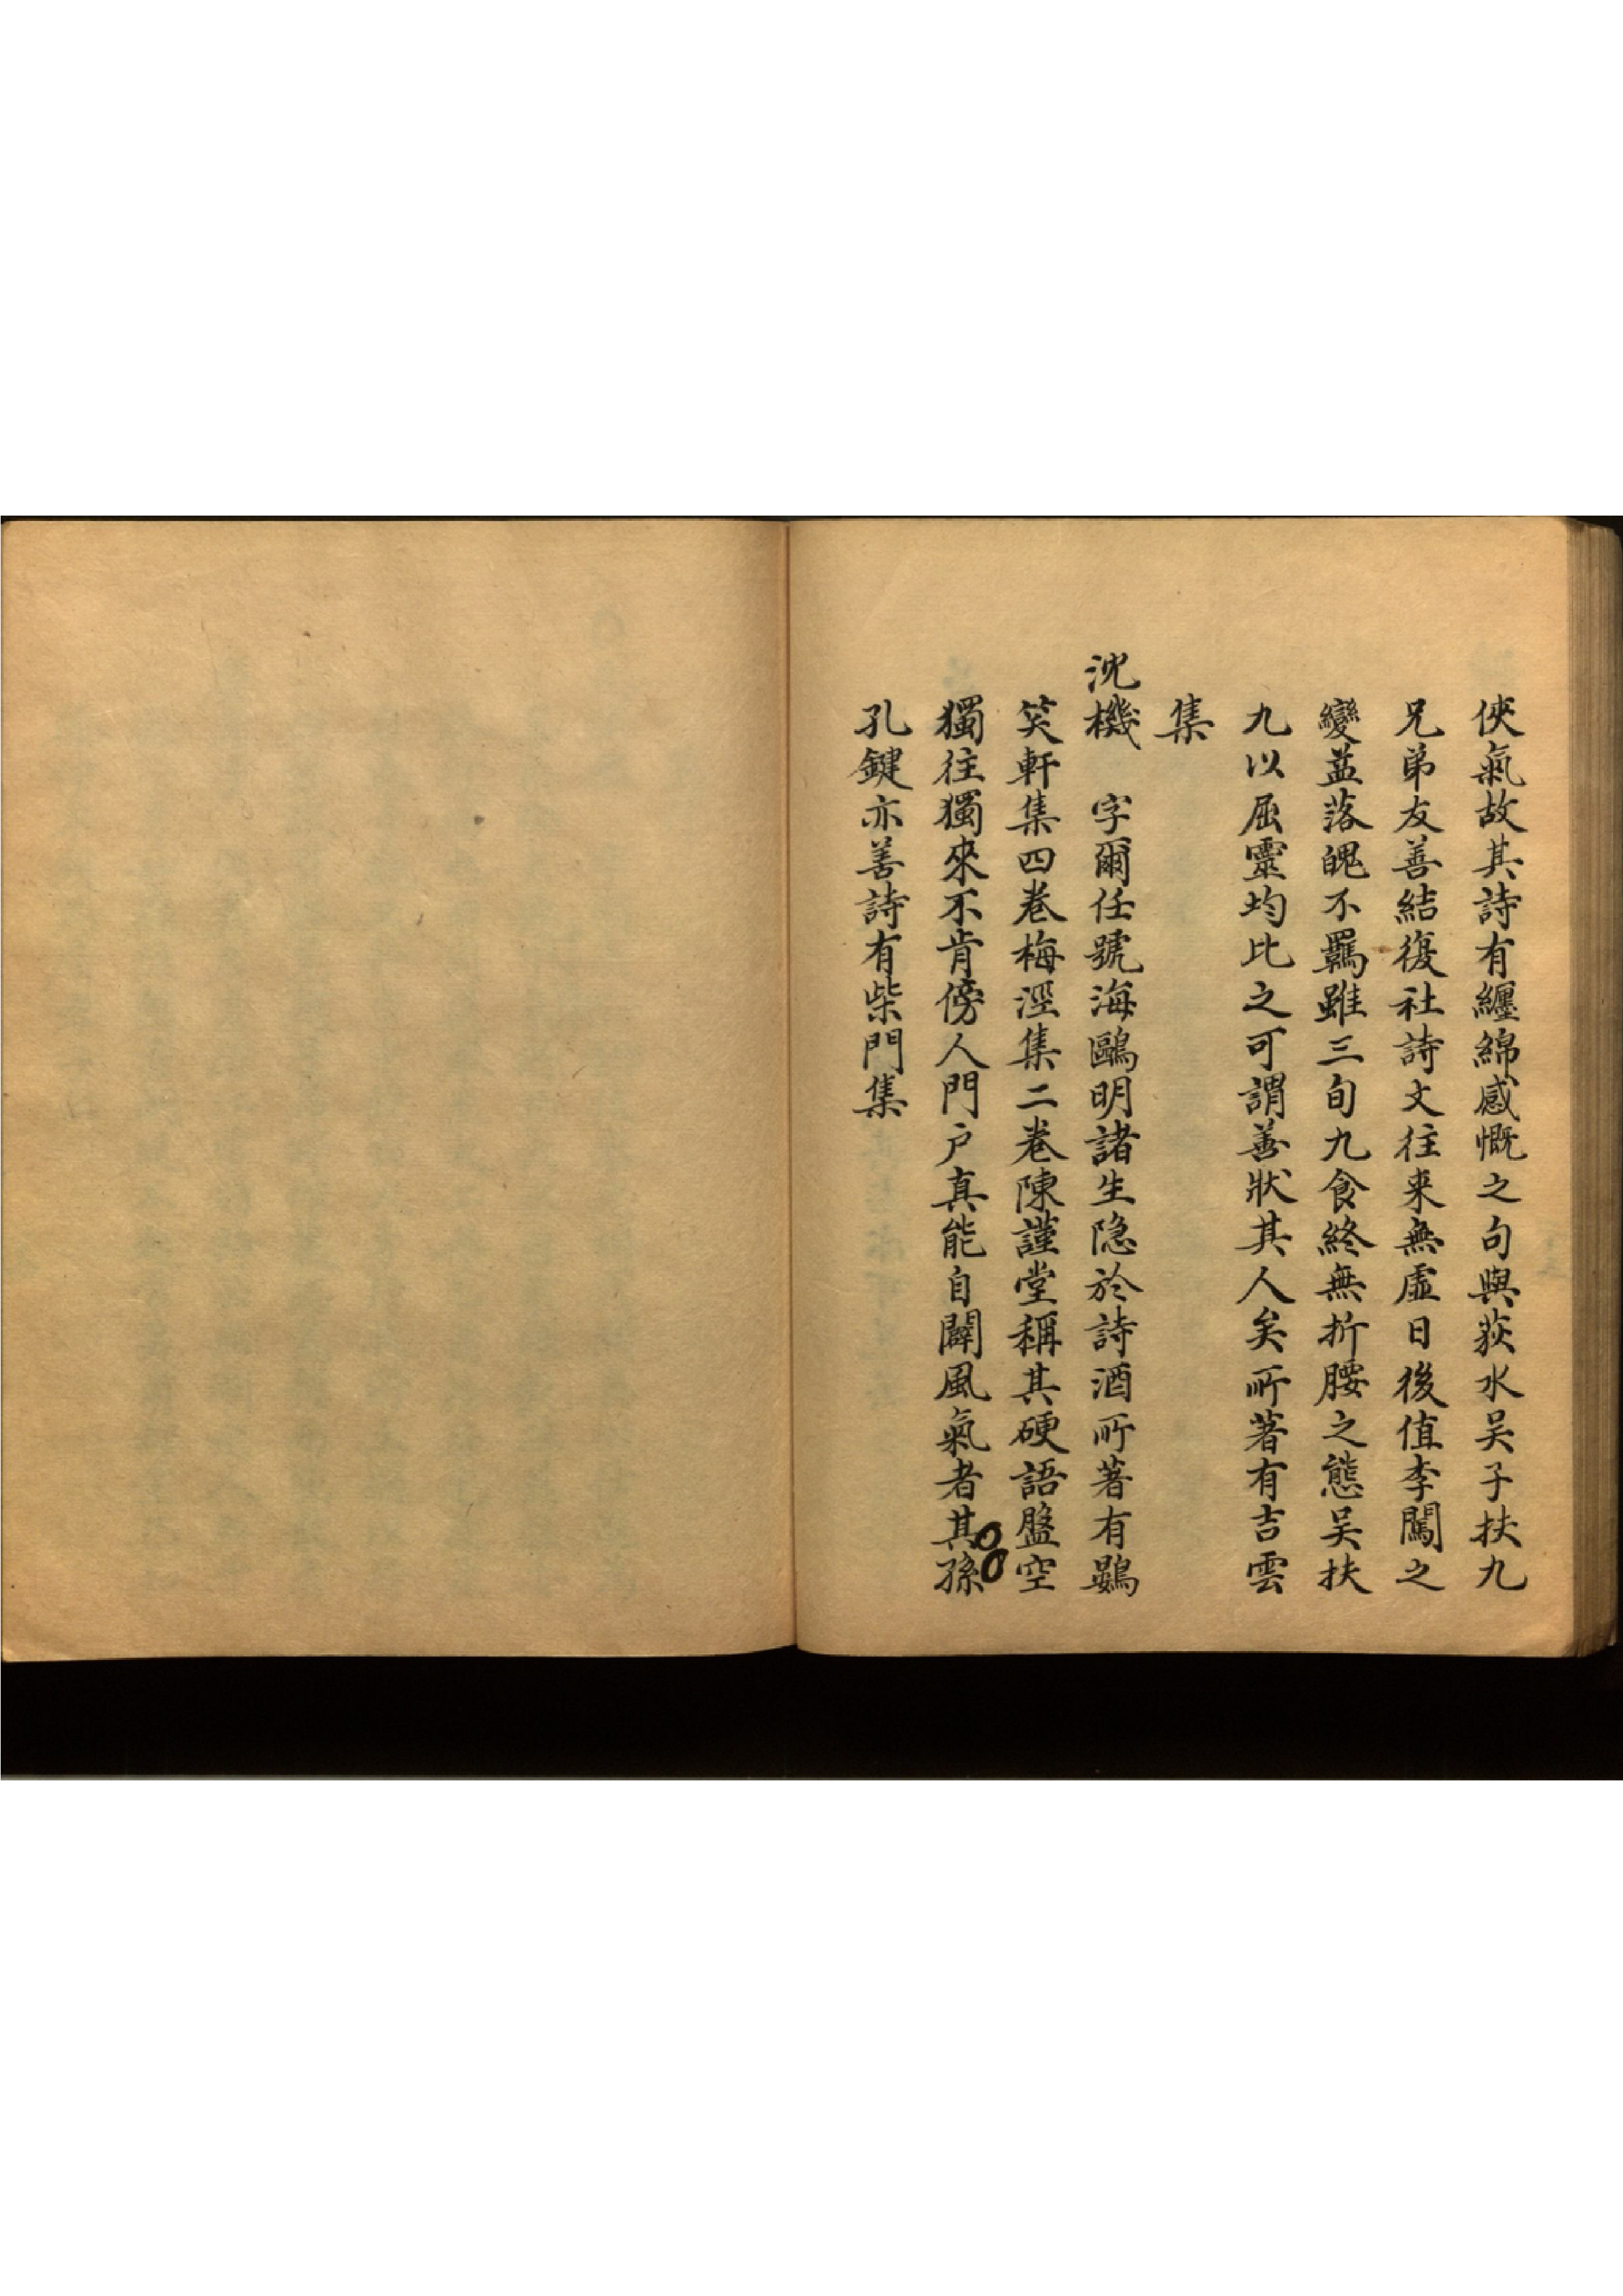 俠氣故其詩有纏綿感慨之句與荻水吴子扶九
兄弟友善結復社詩文往来無虛日後值李闖之
變益落魄不羈雖三旬九食終無折腰之態吴扶
九以屈靈均比之可謂善狀其人矣所著有吉雲
集
沈機　字爾任號海鷗明諸生隐於詩酒所著有鷃
笑軒集四巻梅涇集二巻陳謹堂稱其硬語盤空
獨往獨來不肯傍人門户真能自闢風氣者其孫
孔鍵亦善詩有柴門集